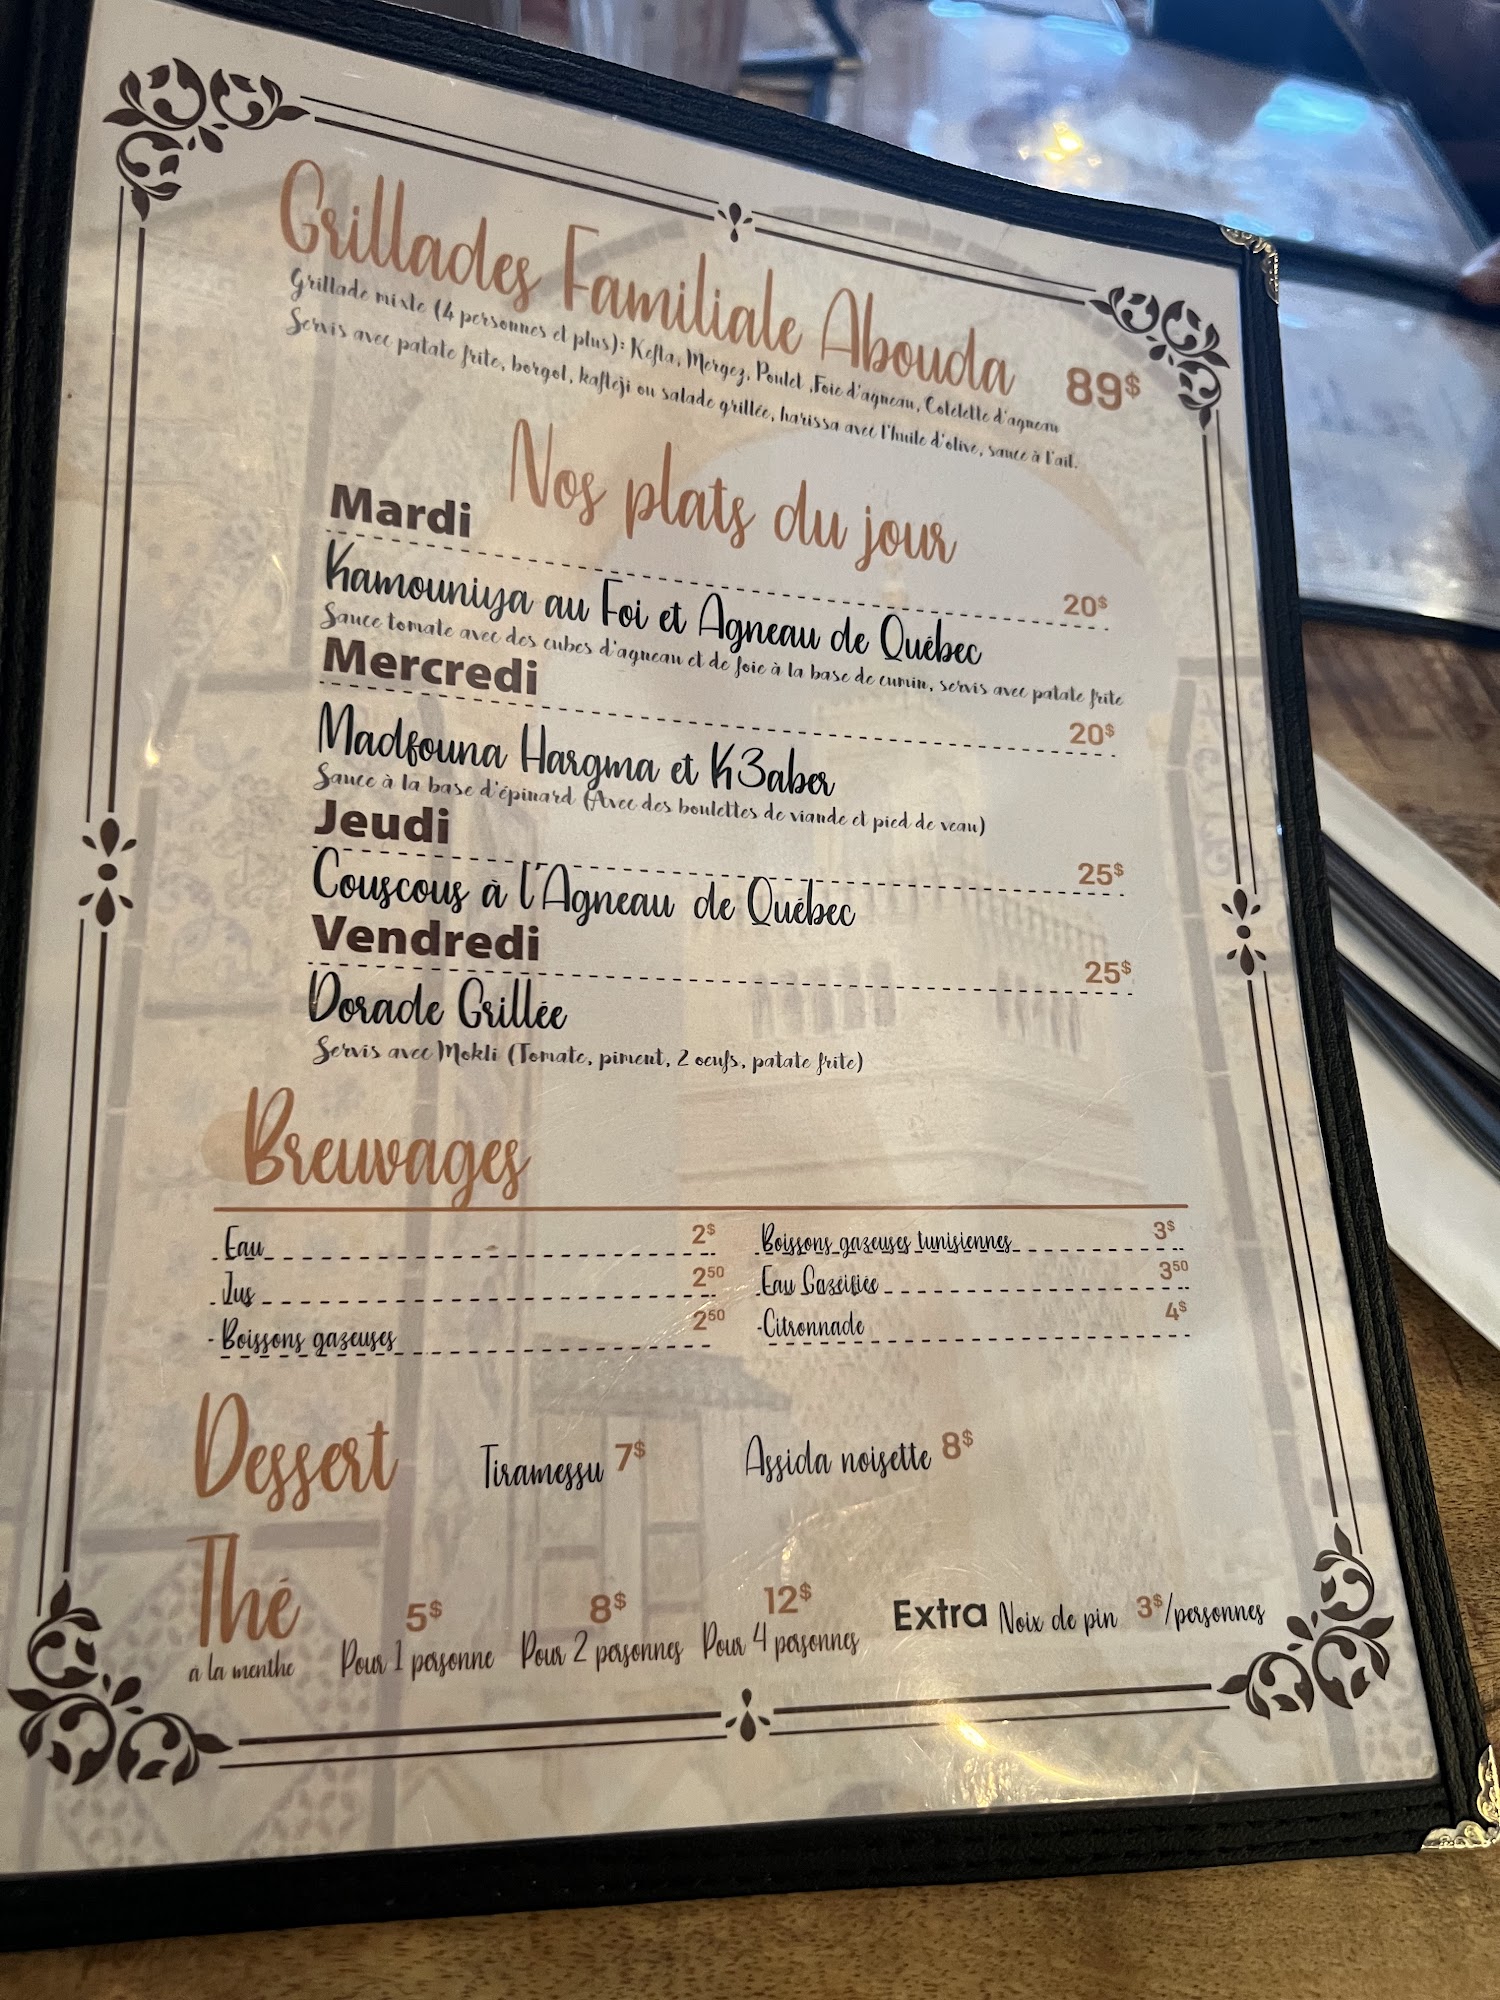 Grillades Familiale Abouda 89$
Grillade mixte (4 personnes et plus): Kefta, Mergez, Poulet ,Foie d'agneau, Cotelette d'agneau
Servis avec patate frite, borgol, kafteji ou salade grillée, harissa avec l'huile d'olive, sauce à l'ail.
Nos plats du jour
Mardi
20$
Kamouniya au Foi et Agneau de Québec
Sauce tomate avec des cubes d'agneau et de foie à la base de cumin, servis avec patate frite
Mercredi
20$
Madfouna Hargma et K3aber
Sauce à la base d'épinard (Avec des boulettes de viande et pied de veau)
Jeudi
25$
Couscous à l'Agneau de Québec
Vendredi
25$
Dorade Grillée
Servis avec Mokli (Tomate, piment, 2 oeufs, patate frite)
Breuvages
Eau 2$
Jus 2 50
- Boissons gazeuses 2 50
Boissons gazeuses tunisiennes 3$
Eau Gazéifiée 3 50
-Citronnade 4$
Dessert Tiramessu 7$ Assida noisette 8$
Thé 5$ 8$ 12$ Extra Noix de pin 3$/personnes
à la menthe Pour 1 personne Pour 2 personnes Pour 4 personnes